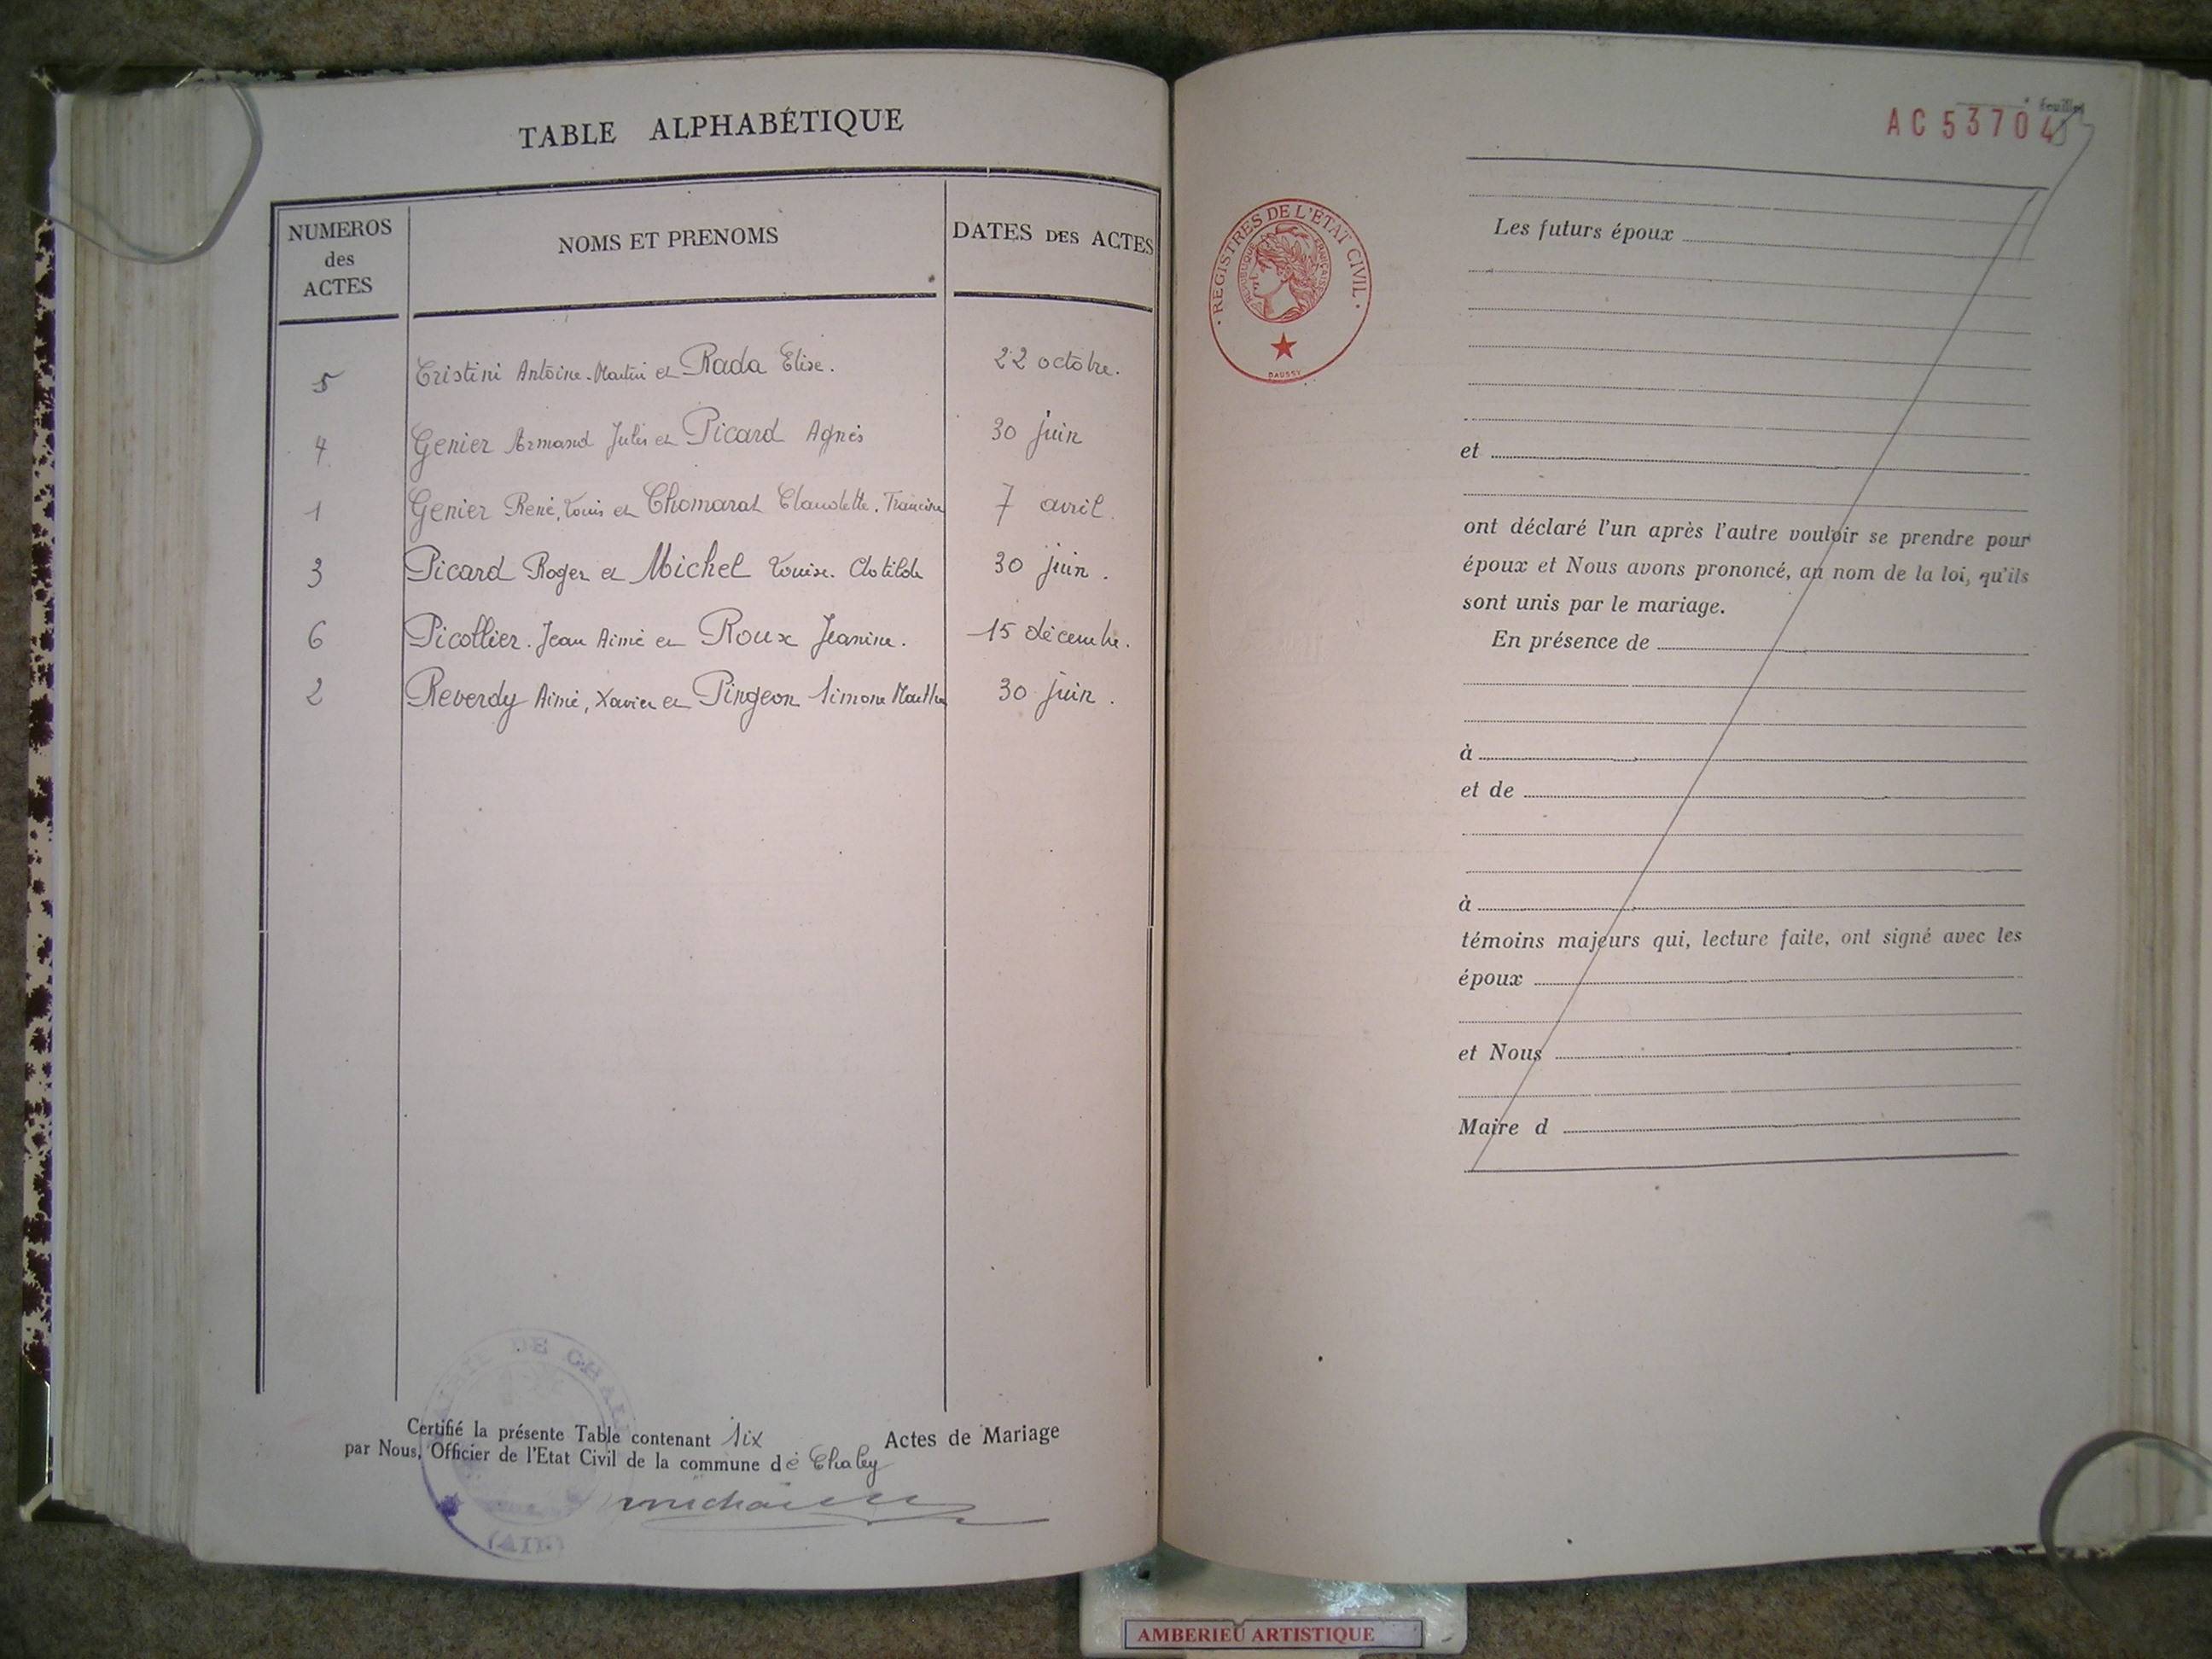 TABLE ALPHABÉTIQUE
NUMEROS des ACTES
NOMS ET PRENOMS
DATES DES ACTES
5 Cristini Antoine-Martin et Rada Elise. 22 octobre.
4 Genier Armand Jules et Picard Agnès 30 juin
1 Genier René, Louis et Chomarat Claudette. Francine 7 avril.
3 Picard Roger et Michel Louise. Clotilde 30 juin.
6 Picollier. Jean Aimé et Roux Jeanine. 15 décembre.
2 Reverdy Aimé, Xavier et Pingeon Simone Marthe 30 juin.
Certifié la présente Table contenant six Actes de Mariage
par Nous, Officier de l'Etat Civil de la commune de Chaley
DE CHAL
(AIN)
AC 53704
feuillet
REGISTRES DE L'ÉTAT CIVIL
RÉPUBLIQUE FRANÇAISE
DAUSSY
Les futurs époux
et
ont déclaré l'un après l'autre vouloir se prendre pour
époux et Nous avons prononcé, au nom de la loi, qu'ils
sont unis par le mariage.
En présence de
à
et de
à
témoins majeurs qui, lecture faite, ont signé avec les
époux
et Nous
Maire d
AMBERIEU ARTISTIQUE